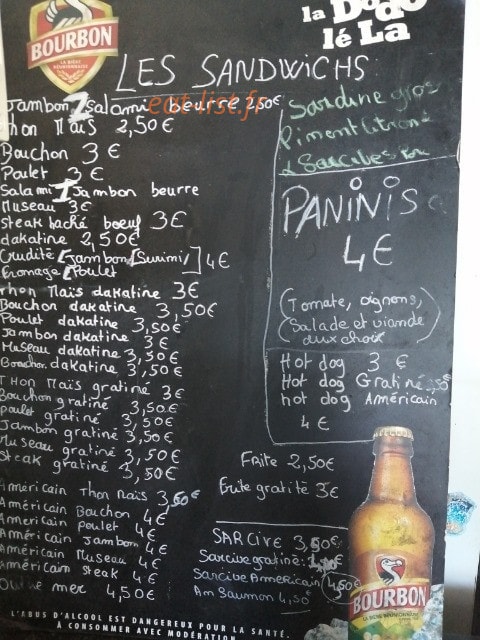 BOURBON
LA BIÈRE RÉUNIONNAISE
la Dodo
lé La
LES SANDWICHS
Jambon / salami beurre 2,50€
eat-list.fr
Thon Maïs 2,50€
Bouchon 3€
Poulet 3€
Salami / Jambon beurre
Museau 3€
steak haché boeuf 3€
dakatine 2,50€
Crudité [Jambon [Surimi /] 4€
fromage [Poulet
Thon Maïs dakatine 3€
Bouchon dakatine 3,50€
Poulet dakatine 3,50€
Jambon dakatine 3€
Museau dakatine 3,50€
Bouchon dakatine 3,50€
Thon Maïs gratiné 3€
Bouchon gratiné 3,50€
poulet gratiné 3,50€
Jambon gratiné 3,50€
Museau gratiné 3,50€
Steak gratiné 3,50€
Américain Thon Maïs 3,50€
Américain Bouchon 4€
Américain poulet 4€
Américain Jambon 4€
Américain Museau 4€
Américain Steak 4€
mer 4,50€
Sardine gros
Piment Citron
Sarcives
PANINIS
4€
(Tomate, oignons,
Salade et viande
aux choix)
Hot dog 3€
Hot dog Gratiné 3,50€
hot dog Américain
4€
Frite 2,50€
Frite gratité 3€
SARCIVE 3,50€
Sarcive gratiné:
Sarcive Américain 4,50€
Am Saumon 4,50€
BOURBON
LA BIÈRE RÉUNIONNAISE
L'ABUS D'ALCOOL EST DANGEREUX POUR LA SANTÉ
À CONSOMMER AVEC MODÉRATION